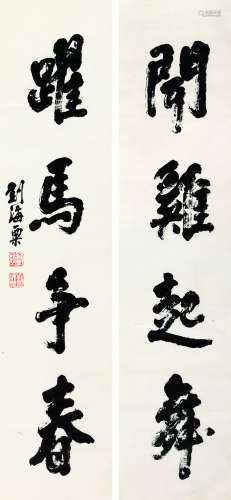 聞雞起舞
躍馬爭春
劉海粟